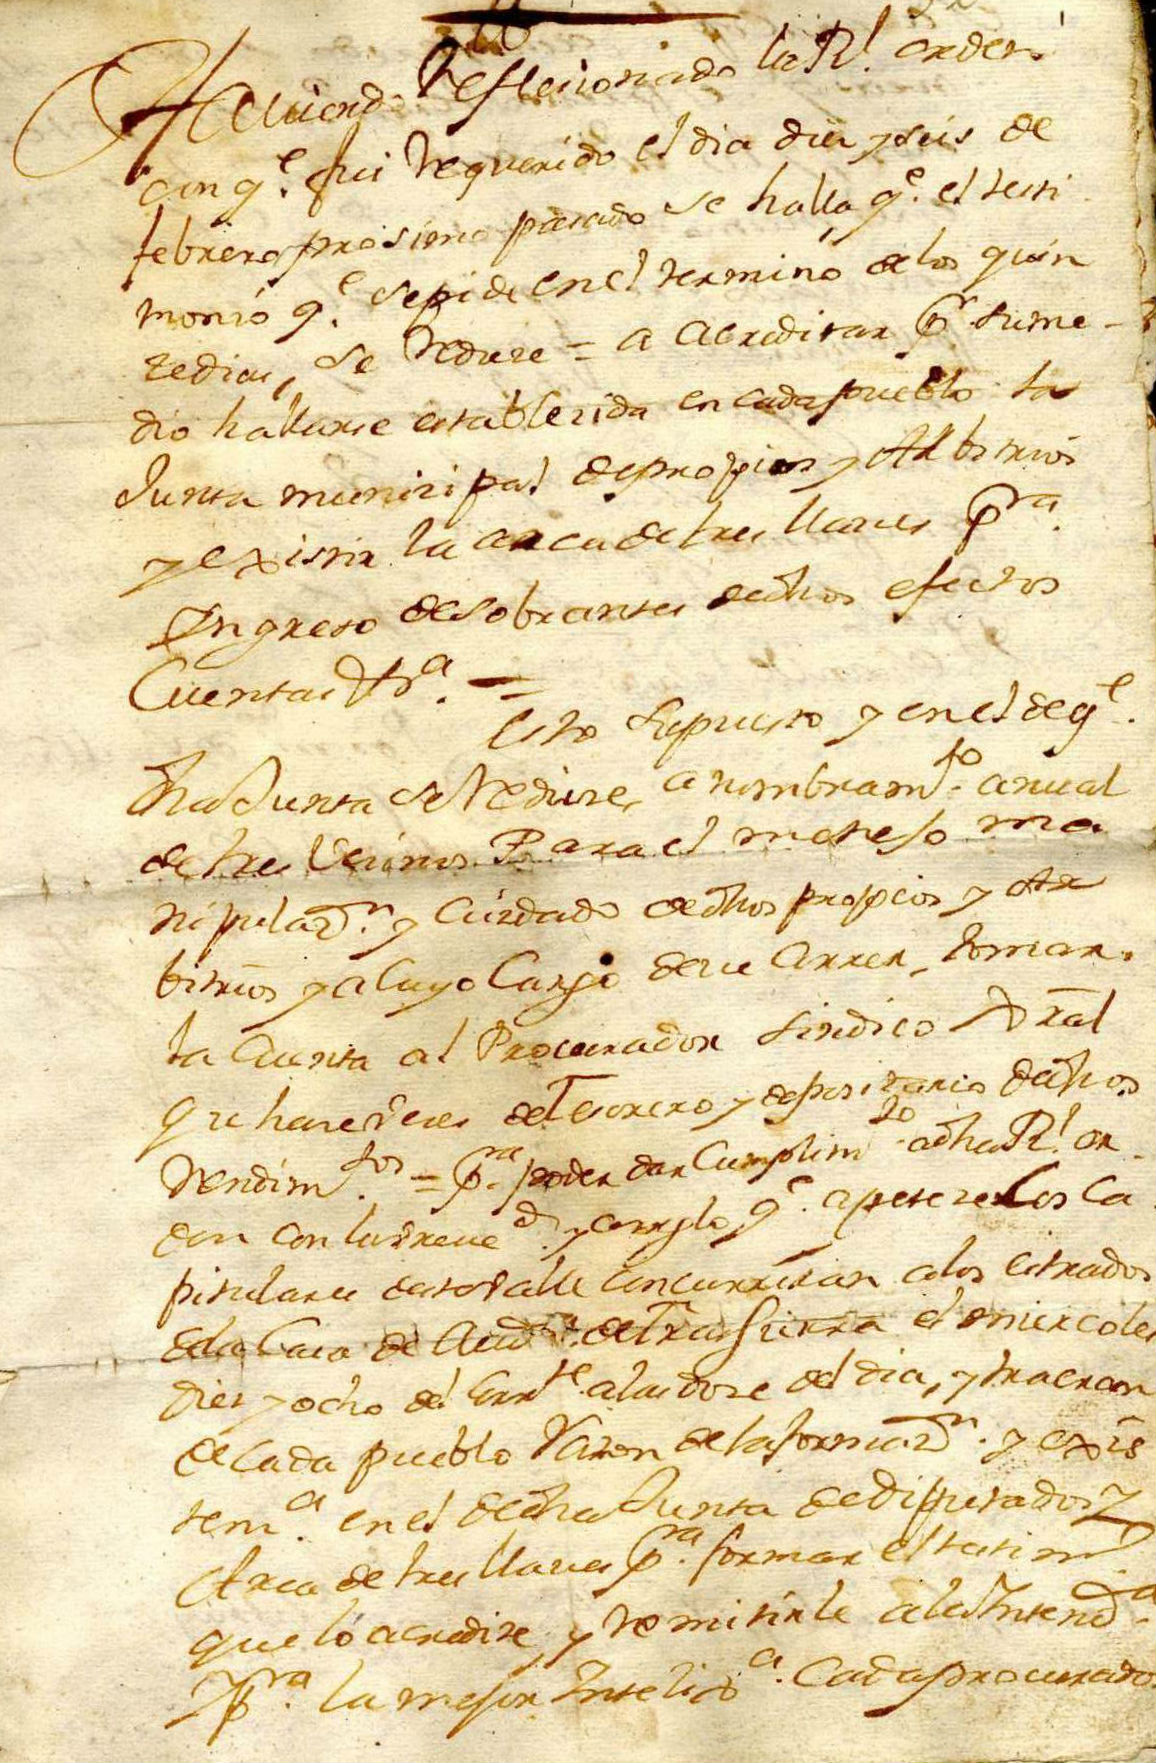 Haviendo Reflecionado la Rl. orden
con qe. fui Requerido el dia diez y seis de
febrero prosimo pasado se halla qe. el testi
monio qe. se pide en el termino de los quin
ze dias, se Reduze = a acreditar pr. su me-
dio hallarse establezida en cada pueblo la
Junta munizipal de propios y Arbitrios
y existir la arca de tres llaves pra.
Yngreso de sobrantes de dhos efectos
Cuentas &ra. =
Esto supuesto y en el de qe.
dha Junta se Reduze a nombramto. anual
de tres Vecinos Para el manejo ma
nipulazn. y Cuidado de dhos propios y Ar
bitrios y a Cuyo Cargo deve Correr, tomar
la Cuenta al Procurador Sindico Gral
que haze vezes de Tesorero y depositario de dhos
Rendimtos. = pa. poder dar Cumplimto. a dha Rl. or
den con la breved. y arreglo qe. apeteze los Ca
pitulares de este valle concurriran a los Estrados
de la Casa de Auda. de Tras Sierra el miercoles
diez y ocho del Corrte. a las doze del dia, y traeran
de Cada pueblo Razon de la formazn. y exis
tena. en el de dha Junta de Diputados y
Arca de tres llaves pa. formar el testim
que lo acredite, y Remitirle a la Intenda.
Y pra. la mejor Inteliga. Cada procurador